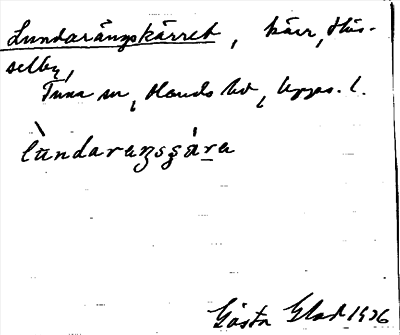 Lundarängskärret, kärr, Hås-
selby,
Tuna sn, Olands hd, Upps. l.
lùndaraŋsɕárə
Gösta Glad 1926